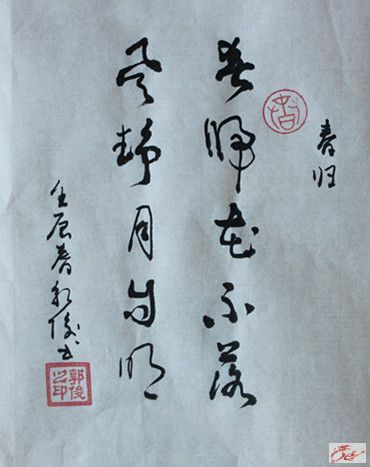 春归
春归花不落
风静月自明
壬辰春郭俊书
郭俊之印